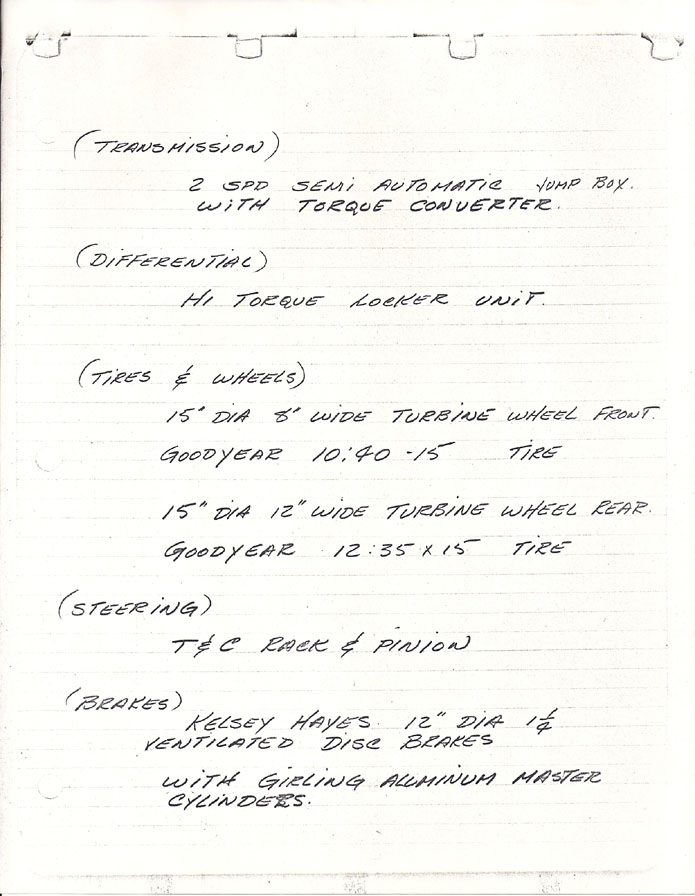 (TRANSMISSION)
2 SPD SEMI AUTOMATIC JUMP BOX.
WITH TORQUE CONVERTER.
(DIFFERENTIAL)
HI TORQUE LOCKER UNIT.
(TIRES & WHEELS)
15" DIA 8" WIDE TURBINE WHEEL FRONT.
GOODYEAR 10:40 -15 TIRE
15" DIA 12" WIDE TURBINE WHEEL REAR.
GOODYEAR 12:35 X 15 TIRE
(STEERING)
T & C RACK & PINION
(BRAKES)
KELSEY HAYES. 12" DIA 1 1/4
VENTILATED DISC BRAKES
WITH GIRLING ALUMINUM MASTER
CYLINDERS.